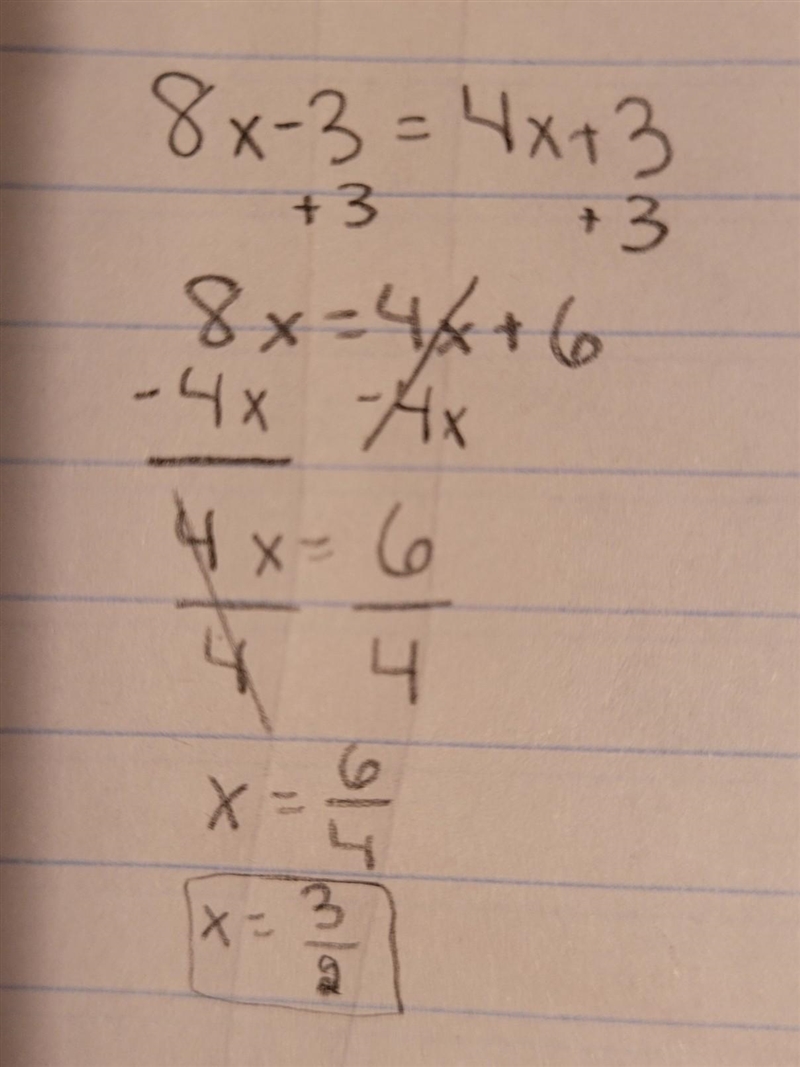 8x-3 = 4x+3
+3 +3
8x = 4x + 6
-4x -4x
4x = 6
4 4
x = 6/4
x = 3/2